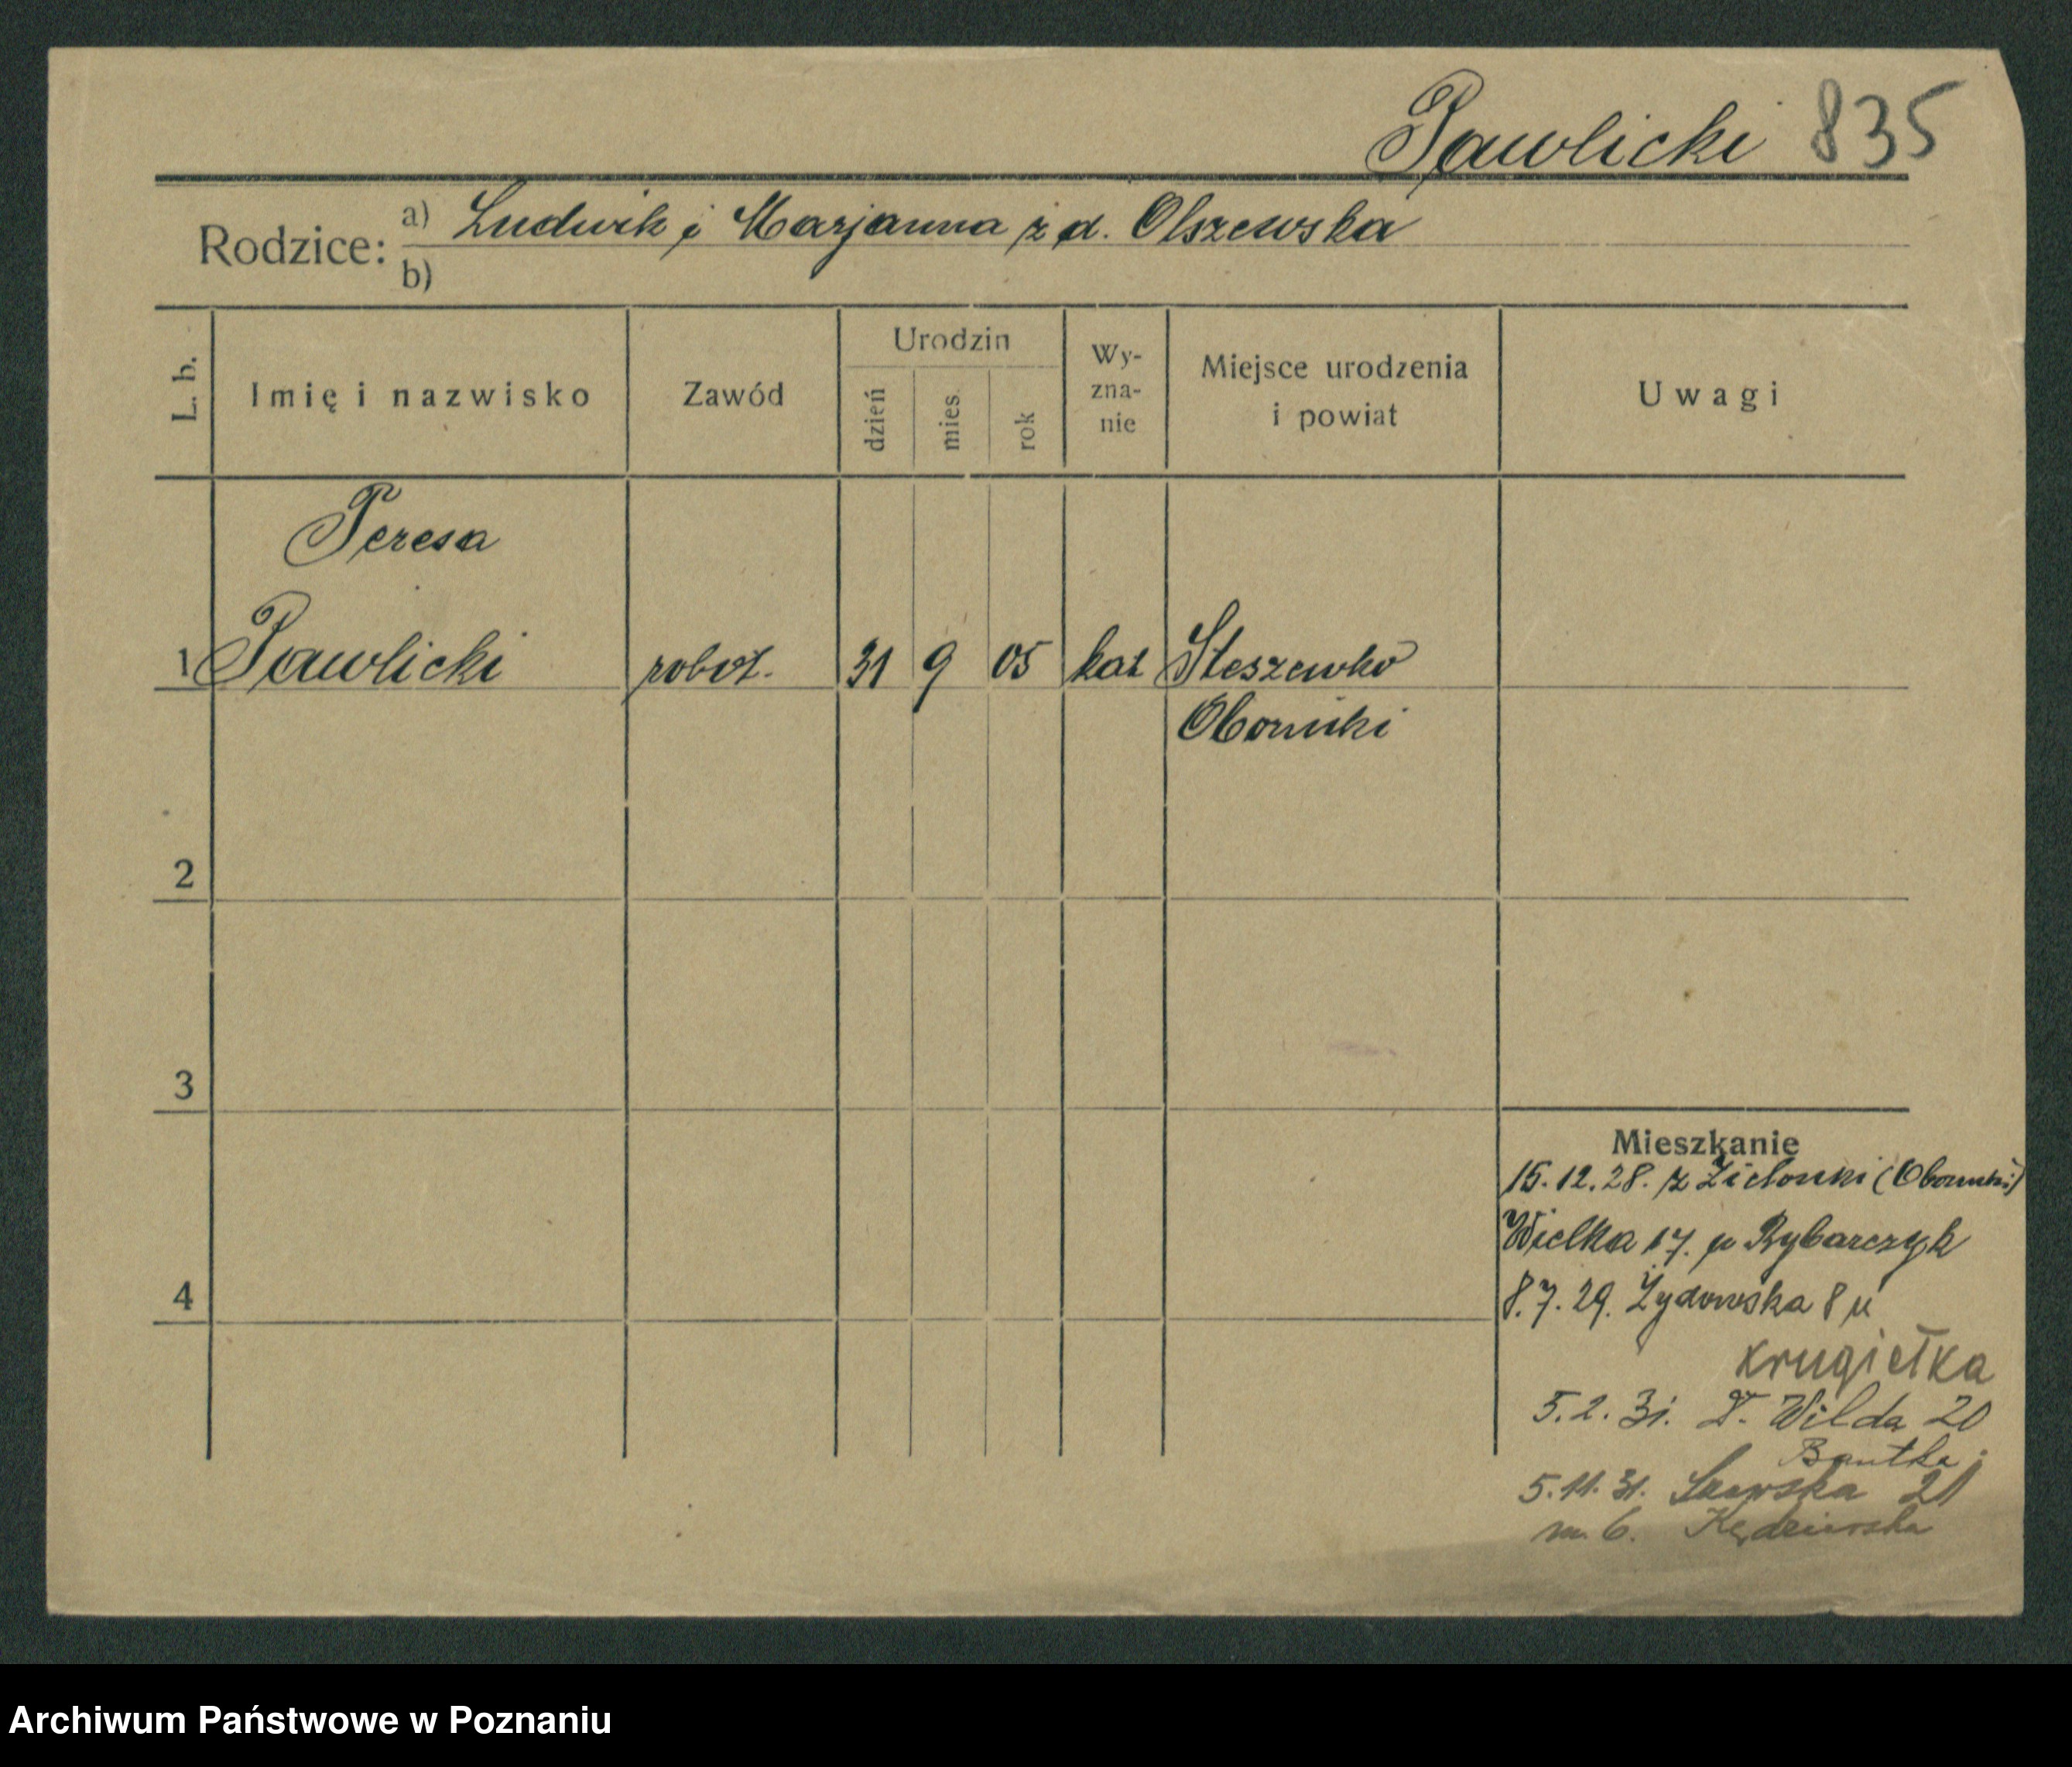 Pawlicki 835
Rodzice: a) Ludwik i Marjanna z d. Olszewska
b)
L. b.
Imię i nazwisko
Zawód
Urodzin
dzień
mies.
rok
Wy-
zna-
nie
Miejsce urodzenia
i powiat
Uwagi
Teresa
1 Pawlicki robot. 31 9 05 kat Steszewko
Oborniki
2
3
4
Mieszkanie
15.12.28. z Zielonki (Oborniki)
Wielka 17. p Rybarczyk
8.7.29. Żydowska 8 u
Krugiełka
5.2.31. D. Wilda 20
5.11.31. 21
m. 6. Kędzierska
Archiwum Państwowe w Poznaniu